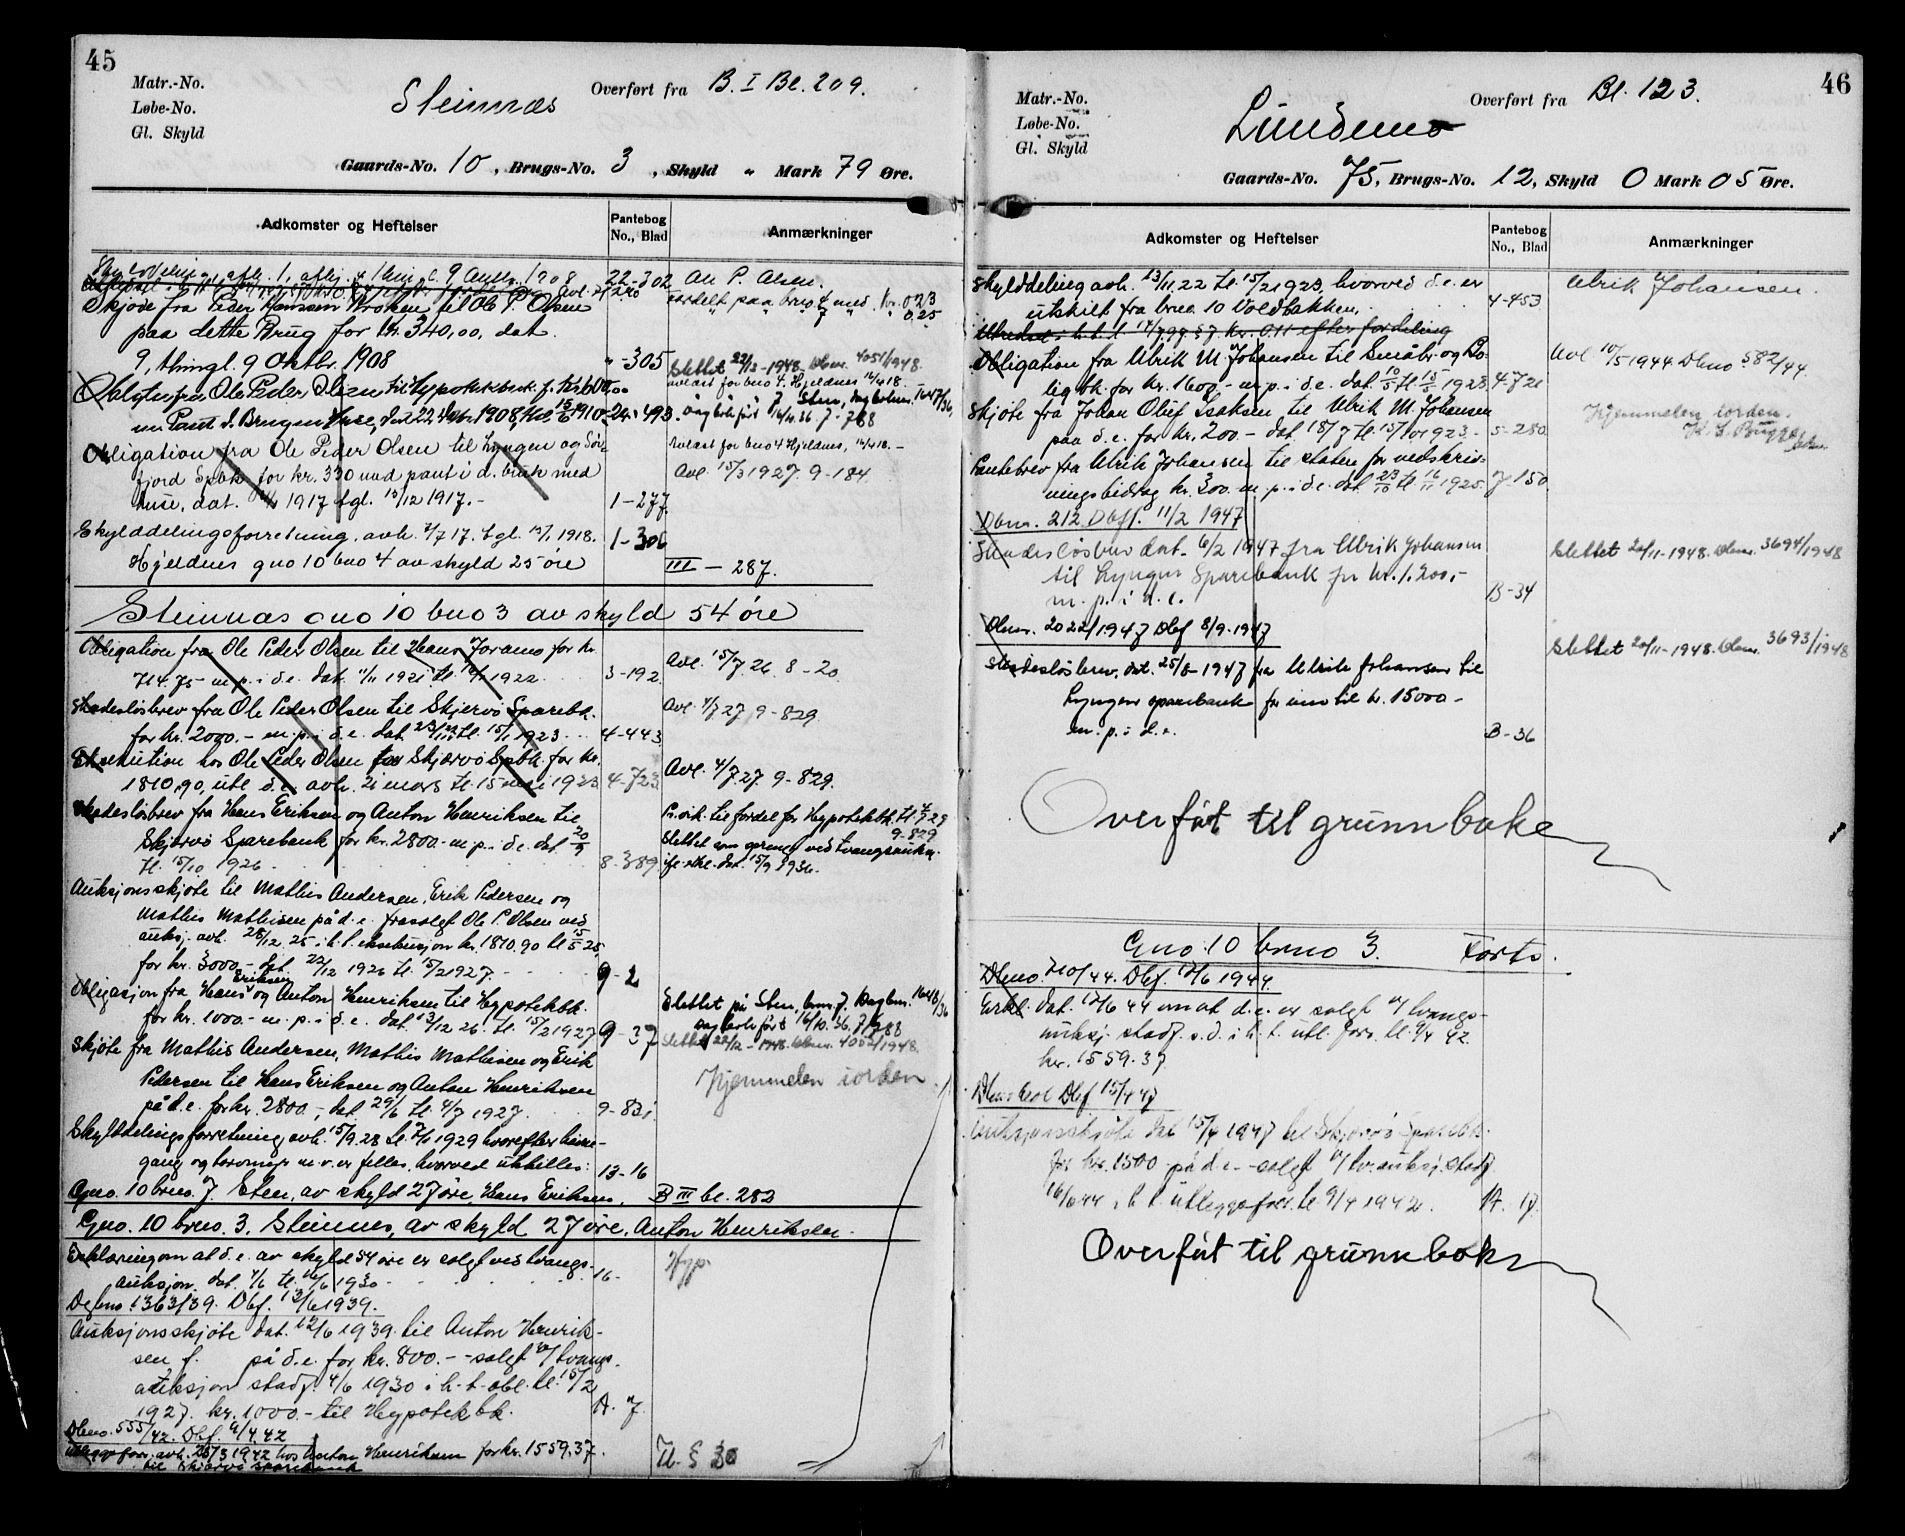 45
Matr.-No.
Løbe-No.
Gl. Skyld
Steinnæs
Overført fra B. I Bl. 209.
Gaards-No. 10, Brugs-No. 3, Skyld " Mark 79 Øre.
Adkomster og Heftelser
Pantebog No., Blad
Anmærkninger
22-302
Skjøde fra Peder Hanssen Kroken til Ole P. Olsen
paa dette Brug for kr. 340,00, dat.
9, thingl. 9 Oktbr. 1908
"-305
Ole P. Olsen.
fordelt paa brug 4 med kr. 0.23
0.25
Slettet 22/12-1948. Dbnr. 4051/1948.
Obligation fra Ole Peder Olsen til Hypothekbank f. kr. 600,00
24-493
Obligation fra Ole Peder Olsen til Lyngen og Sør-
fjord Spbk for kr. 330 med pant i d. bruk med
huse, dat. 1917 tgl. 15/12 1917.-
1-277.
Avl. 15/3 1927. 9-184
Skylddelingsforretning, avh. 2/7 17. tgl. 1918.
1-306
Hjeldnes gno 10 bno 4 av skyld 25 øre
III - 287.
Steinnæs gno 10 bno 3 av skyld 54 øre
Obligation fra Ole Peder Olsen til Hans Joramo for kr.
714.75 m.p. i d.e. dat. 1/11 1921 tl. 1922.
3-192
Avl. 15/7. 26. 8-20.
Skadesløsbrev fra Ole Peder Olsen til Skjervø Sparebk.
for kr. 2000.- m.p. i d.e. dat. tl. 15/1 1923.
4-443
Avl. 4/7 27. 9-829.
Eksekution hos Ole Peder Olsen for Skjervø Spbk. for kr.
1810,90, utl d.e. avh. 21 mars tl. 15 mai 1923
4-723
Avl. 4/7. 27. 9-829.
Skadesløsbrev fra Hans Eriksen og Anton Henriksen til
Skjervø Sparebank for kr. 2800.- m.p. i d.e. dat. 20/9
tl. 15/10 1926.
8-389.
Pr. vik. til fordel for Hypotekbk. tl. 4/7 27
9-829
Slettet som opreist ved tvangsauksj.
ifl. skl. dat. 15/9 1936.
Auksjonsskjøte til Mathis Andersen, Erik Pedersen og
Mathis Mathisen på d.e. frasolgt Ole P. Olsen ved
auksj. avh. 28/12. 25 i h.t. eksekusjon kr. 1810.90 tl. 15/5 23,
for kr. 3000.- dat. 22/12 1926 tl. 15/2 1927.
9-2
Obligasjon fra Hans Eriksen og Anton Henriksen til Hypotekbk.
for kr. 1000.- m.p. i d.e. dat. 13/12 26. tl. 15/2 1927
9-37
Slettet på Sten, bnr. 7. Dagbnr. 1648/36
dagbokført 16/10. 36. 7-788
Slettet 22/12-1948. Dbnr. 4052/1948.
Skjøte fra Mathis Andersen, Mathis Mathisen og Erik
Pedersen til Hans Eriksen og Anton Henriksen
på d.e. for kr. 2800.-, dat. 29/6 tl. 4/7 1927.
9-831
Hjemmelen iorden
Skylddelingsforretning avh. 15/9. 28 tl. 1929 hvorefter havne-
gang og torvmyr m.v. er felles, hvorved utskilles:
13-16
Gno. 10 bno. 7. Sten, av skyld 27 øre, Hans Eriksen.
B III bl. 282
Gno. 10 bno. 3. Steinnes, av skyld 27 øre. Anton Henriksen.
Erklæring om at d.e. av skyld 54 øre er solgt ved tvangs-
auksjon, dat. 4/6 tl. 1930
16-
Hyp.
Dgbno. 1363/39. Dbf. 13/6 1939.
Auksjonsskjøte dat. 12/6 1939. til Anton Henrik-
sen f. på d.e. for kr. 800.- - solgt v/ tvangs-
auksjon stadf. 4/6 1930 i h.t. obl. tl. 15/2
1927. kr. 1000.- til Hypotekbk.
A. 7.
Dbno. 555/42. Dbf. 9/4. 42
Utleggsforr. avh. 25/3 1942 hos Anton Henriksen for kr. 1559.37.
til Skjervø Sparebank
Tl. § 30
46
Matr.-No.
Løbe-No.
Gl. Skyld
Lundemo
Overført fra Bl. 123.
Gaards-No. 75, Brugs-No. 12, Skyld 0 Mark 05 Øre.
Adkomster og Heftelser
Pantebog No., Blad
Anmærkninger
Skylddeling avh. 13/11. 22 tl. 15/2 1923, hvorved d.e. er
utskilt fra brno. 10 Voldbakken.
4-453
Ulrik Johansen.
Obligation fra Ulrik M. Johansen til Småbr. og Bo-
lig bk. for kr. 1600.- m.p. i d.e. dat. 10/5 tl. 15/5 1923
4-721
Avl. 10/5 1944. Dbno 582/44.
Skjøte fra Johan Oluf Isaksen til Ulrik M. Johansen
paa d.e. for kr. 200.- dat. 18/7 tl. 15/10 1923.-
5-280.
Hjemmelen iorden.
Pantebrev fra Ulrik Johansen til staten for nedskriv-
ningsbidrag kr. 300.- m.p. i d.e. dat. 23/10 tl. 16/11 1925.
7-150.
Dbnr. 212. Dbff. 11/2 1947
Skadesløsbrev dat. 6/2 1947 fra Ulrik Johansen
til Lyngen Sparebank for kr. 1.200,-
m.p. i d.e.
B-34
Slettet 20/11-1948. Dbnr. 3694/1948
Dbnr. 2022/1947 Dbf 8/9-1947
Skadesløsbrev, dat. 25/8-1947 fra Ulrik Johansen til
Lyngen sparebank for inntil kr. 15000-
m.p. i d.e.
B-36
Slettet 20/11-1948. Dbnr. 3693/1948
Overført til grunnboken
Gno. 10 brno 3. Forts.
Dbno. 710/44. Dbf. 12/6 1944.
Erkl. dat. 12/6 44 om at d.e. er solgt v/ tvangs-
auksj. stadf. s.d. i h.t. utl. forr. tl. 9/4 42
kr. 1559.37
Dbf 15/4 47
Auksjonsskjøte dat 15/4 1947 til Skjervø Sparebk.
for kr. 1500 på d.e. - solgt v/ tv.auksj. stadf.
16/6 44 i h.t. utleggsforr. tl. 9/4 1942.
A. 17.
Overført til grunnboken